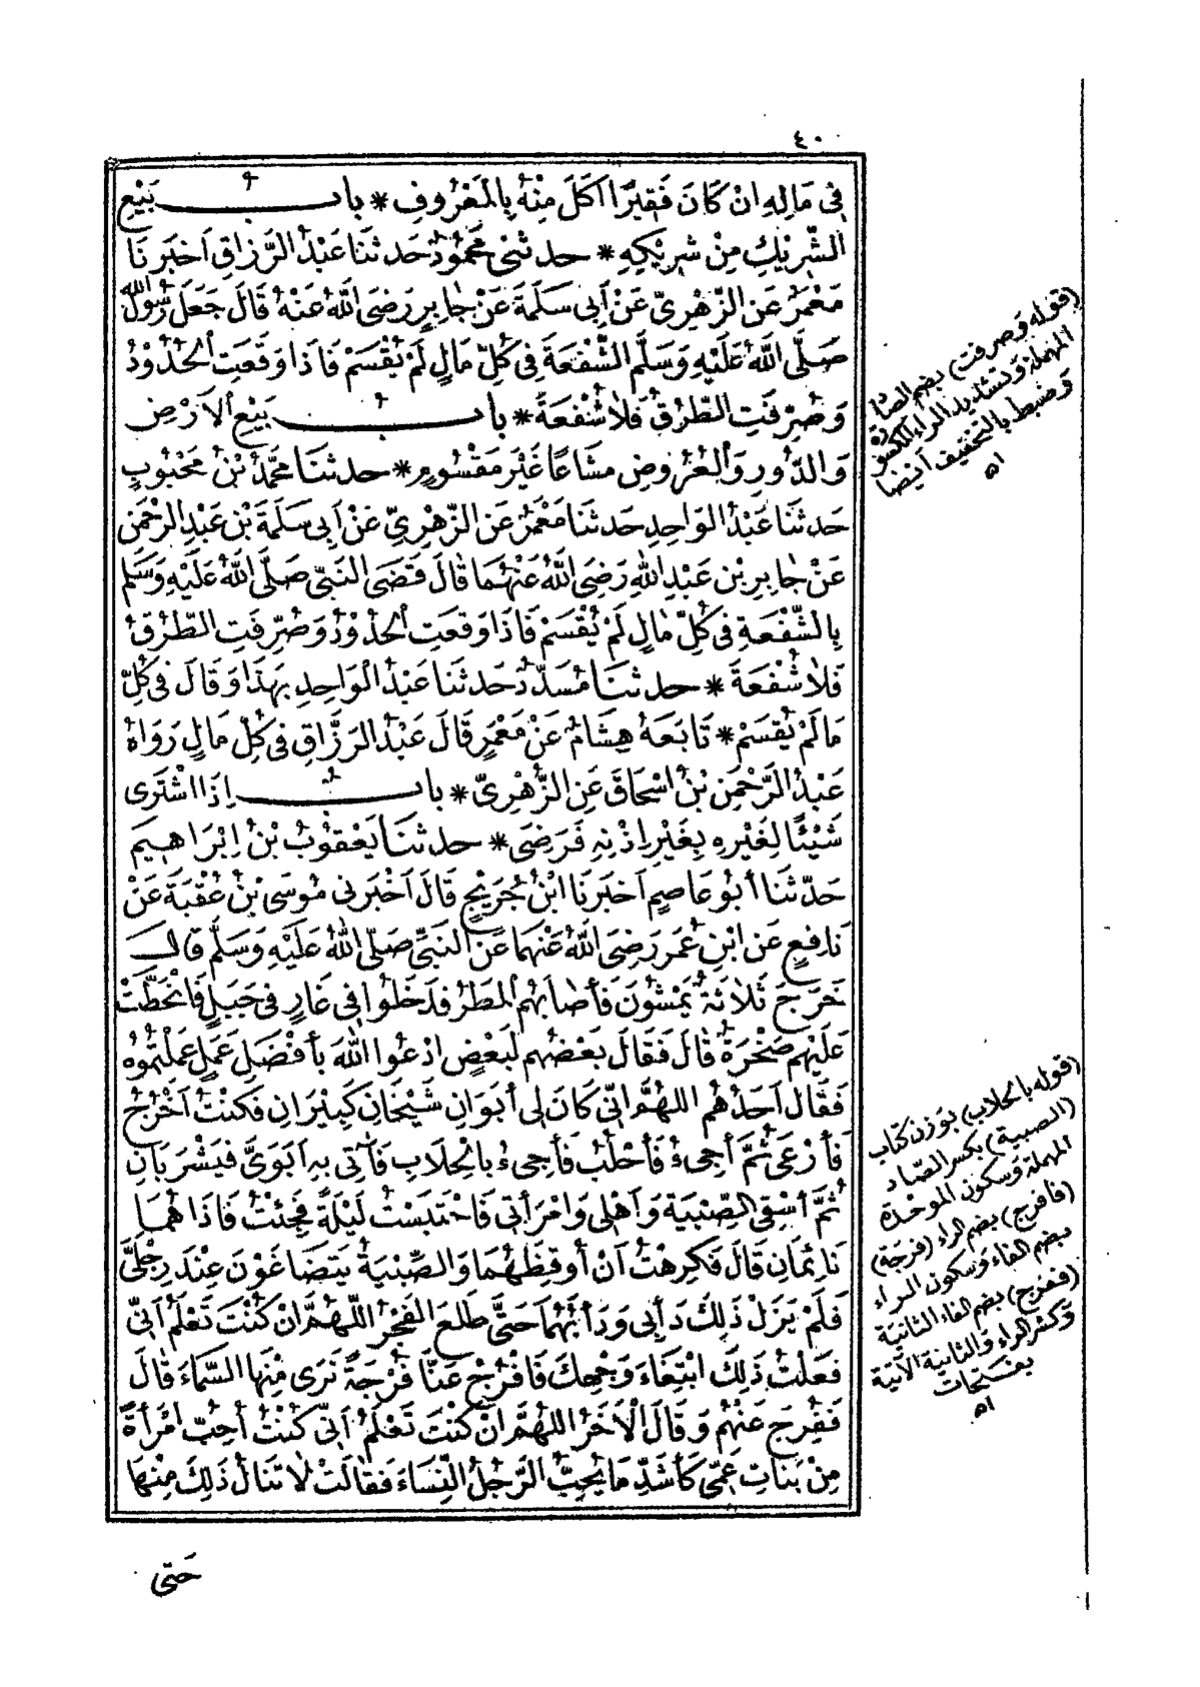 ٤٠
فِى مَالِهِ اِنْ كَانَ فَقِيْرًا اَكَلَ مِنْهُ بِالْمَعْرُوفِ * باب بَيْعِ
الشَّرِيْكِ مِنْ شَرِيْكِهِ * حدثنى مَحْمُوْدٌ حَدثنَا عَبْدُ الرَّزاقِ اَخبَرَنَا
مَعْمَرٌ عَنِ الزُّهْرِىِّ عَنْ اَبِى سَلَمَةَ عَنْ جابِرٍ رَضِىَ اللّٰهُ عَنْهُ قَالَ جَعَلَ رَسُولُ اللّٰه
صَلَّى اللّٰهُ عَلَيْهِ وَسَلَّم الشُّفْعَةَ فِى كُلِّ مَالٍ لَمْ يُقْسَمْ فَاِذَا وَقَعَتِ الْحُدُوْدُ
وَصُرِّفَتِ الطُّرُقُ فَلَا شُفْعَةَ * بابُ بَيْعِ الاَرْضِ
وَالدُّورِ وَالْعُرُوضِ مشَاعًا غَيْرَ مَقْسُومٍ * حدثنَا مُحَمَّدُ بْنُ مَحْبُوبٍ
حَدثَنَا عَبْدُ الْوَاحِدِ حَدثَنَا مَعْمَرٌ عَنِ الزُّهْرِىِّ عَنْ اَبِى سَلَمَةَ بْنِ عَبْدِ الرَّحْمٰنِ
عَنْ جابِرِ بْنِ عَبْدِ اللّٰهِ رَضِىَ اللّٰهُ عَنْهُمَا قالَ قَضَى النَّبِىُّ صَلَّى اللّٰهُ عَلَيْهِ وَسَلَّم
بِالشُّفْعَةِ فِى كُلِّ مالٍ لَمْ يُقْسَمْ فَاِذَا وَقَعَتِ الْحُدُوْدُ وَصُرِّفَتِ الطُّرُقُ
فَلا شُفْعَةَ * حدثنَا مُسَدَّدٌ حَدثَنا عَبْدُ الْوَاحِدِ بِهَذَا وَقَالَ فِى كُلِّ
مَا لَمْ يُقْسَمْ * تَابَعَهُ هِشَامٌ عَنْ مَعْمَرٍ قَالَ عَبْدُ الرَزَّاقِ فِى كُلِّ مَالٍ رَوَاهُ
عَبْدُ الرَّحْمٰنِ بْنُ اِسْحَاقَ عَنِ الزُّهْرِىِّ * باب اِذَا اشْتَرَى
شَيْئًا لِغَيْرِهِ بِغَيْرِ اِذْنِهِ فَرَضِىَ * حدثنَا يَعْقُوْبُ بْنُ اِبْرَاهِيْمَ
حَدّثَنَا اَبُو عَاصِمٍ اَخبَرَنَا ابْنُ جُرَيْجٍ قَالَ اَخْبَرَنِى مُوسَى بْنُ عُقْبَةَ عَنْ
نَافِعٍ عَنِ ابْنِ عُمَرَ رَضِىَ اللّٰهُ عَنْهُمَا عَنِ النَّبِىِّ صَلّى اللّٰهُ عَلَيْهِ وَسَلَّمَ قالَ
خَرَجَ ثَلَاثَةٌ يَمْشُوْنَ فَأَصَابَهُمُ الْمَطَرُ فَدَخَلُوا فِى غَارٍ فِى جَبَلٍ فَانْحَطَّتْ
عَلَيْهِم صَخْرَةٌ قَالَ فَقَالَ بَعْضُهُم لِبَعْضٍ ادْعُوا اللّٰهَ بِأَفْضَلِ عَمَلٍ عَمِلْتُمُوْهُ
فَقَالَ اَحَدُهُم اللهُمَّ اِنِّى كَانَ لِى أَبَوَانِ شَيْخَانِ كَبِيْرَانِ فَكُنْتُ اَخْرُجُ
فَأَرْعَى ثُمَّ أَجِىءُ فَأَحْلُبُ فَأَجِىءُ بِالْحِلَابِ فَآتِى بِهِ اَبَوَىَّ فَيَشْرَبَانِ
ثُمَّ أَسْقِى الصِّبْيَةَ وَأَهْلِى وَامْرَأَتِى فَاحْتَبَسْتُ لَيْلَةً فَجِئْتُ فَاِذَا هُمَا
نَائِمَانِ قَالَ فَكَرِهْتُ أَنْ أُوقِظَهُمَا وَالصِّبْيَةُ يَتَضَاغَوْنَ عِنْدَ رِجْلَىَّ
فَلَمْ يَزَلْ ذَلِكَ دَأْبِى وَدَأْبَهُمَا حَتَّى طَلَعَ الْفَجْرُ اللّهُمَّ اِنْ كُنْتَ تَعْلَمُ اَنِّى
فَعَلْتُ ذَلِكَ ابْتِغَاءَ وَجْهِكَ فَافْرُجْ عَنَّا فُرْجَةً نَرَى مِنْهَا السَّمَاءَ قَالَ
فَفُرِجَ عَنْهُمْ وَقَالَ الْآخَرُ اللهُمَّ اِنْ كُنْتَ تَعْلَمُ اَنِّى كُنْتُ اُحِبُّ امْرَأَةً
مِنْ بَنَاتِ عَمِّى كَأَشَدِّ مَا يُحِبُّ الرَّجُلُ النِّسَاءَ فَقَالَتْ لَا تَنَالُ ذَلِكَ مِنْهَا
حَتى
(قوله وَصرفت) بضم الصاد
المهملة وتشديد الراء المكسورة
وَضبط بالتخفيف اَيضا
اه
(قوله بالحلاب) بوَزن كتاب
(الصبية) بكسر الصّاد
المهملة وَسكون الموحدة
(فافرج) بضم الراء (فرجَة)
بضم الفاء وَسكون الراء
(ففرج) بضم الفاء الثانيَة
وَكسر الراء وَالثانية الآتية
بفتحات
اه